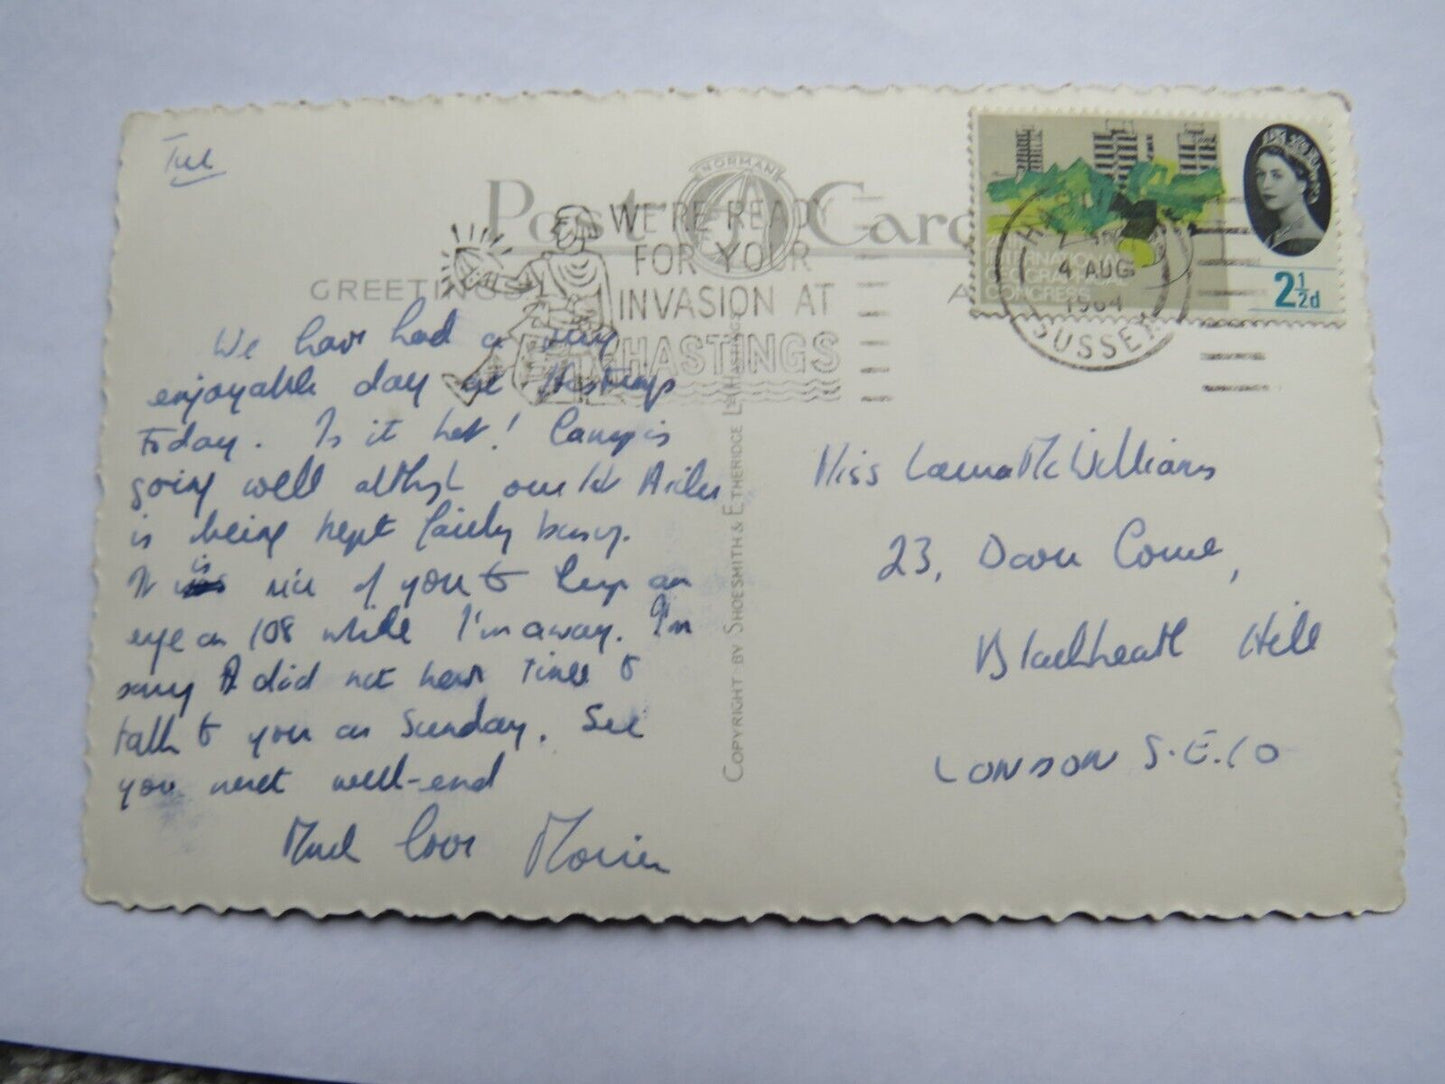 Tue
Post Card
NORMAN
GREETINGS
WE'RE READY
FOR YOUR
INVASION AT
HASTINGS
INTERNATIONAL
GEOGRAPHICAL
CONGRESS
2½d
4 AUG
1964
SUSSEX
We have had a very
enjoyable day at Hastings
today. Is it hot! Camp is
going well although our 1st Aider
is being kept fairly busy.
It is nice of you to keep an
eye on 108 while I'm away. I'm
sorry I did not have time to
talk to you on Sunday. See
you next well-end
Much love
COPYRIGHT BY SHOESMITH & ETHERIDGE LTD HASTINGS
Miss Laura McWilliams
23, Coure,
Blackheath Hill
LONDON S.E.10